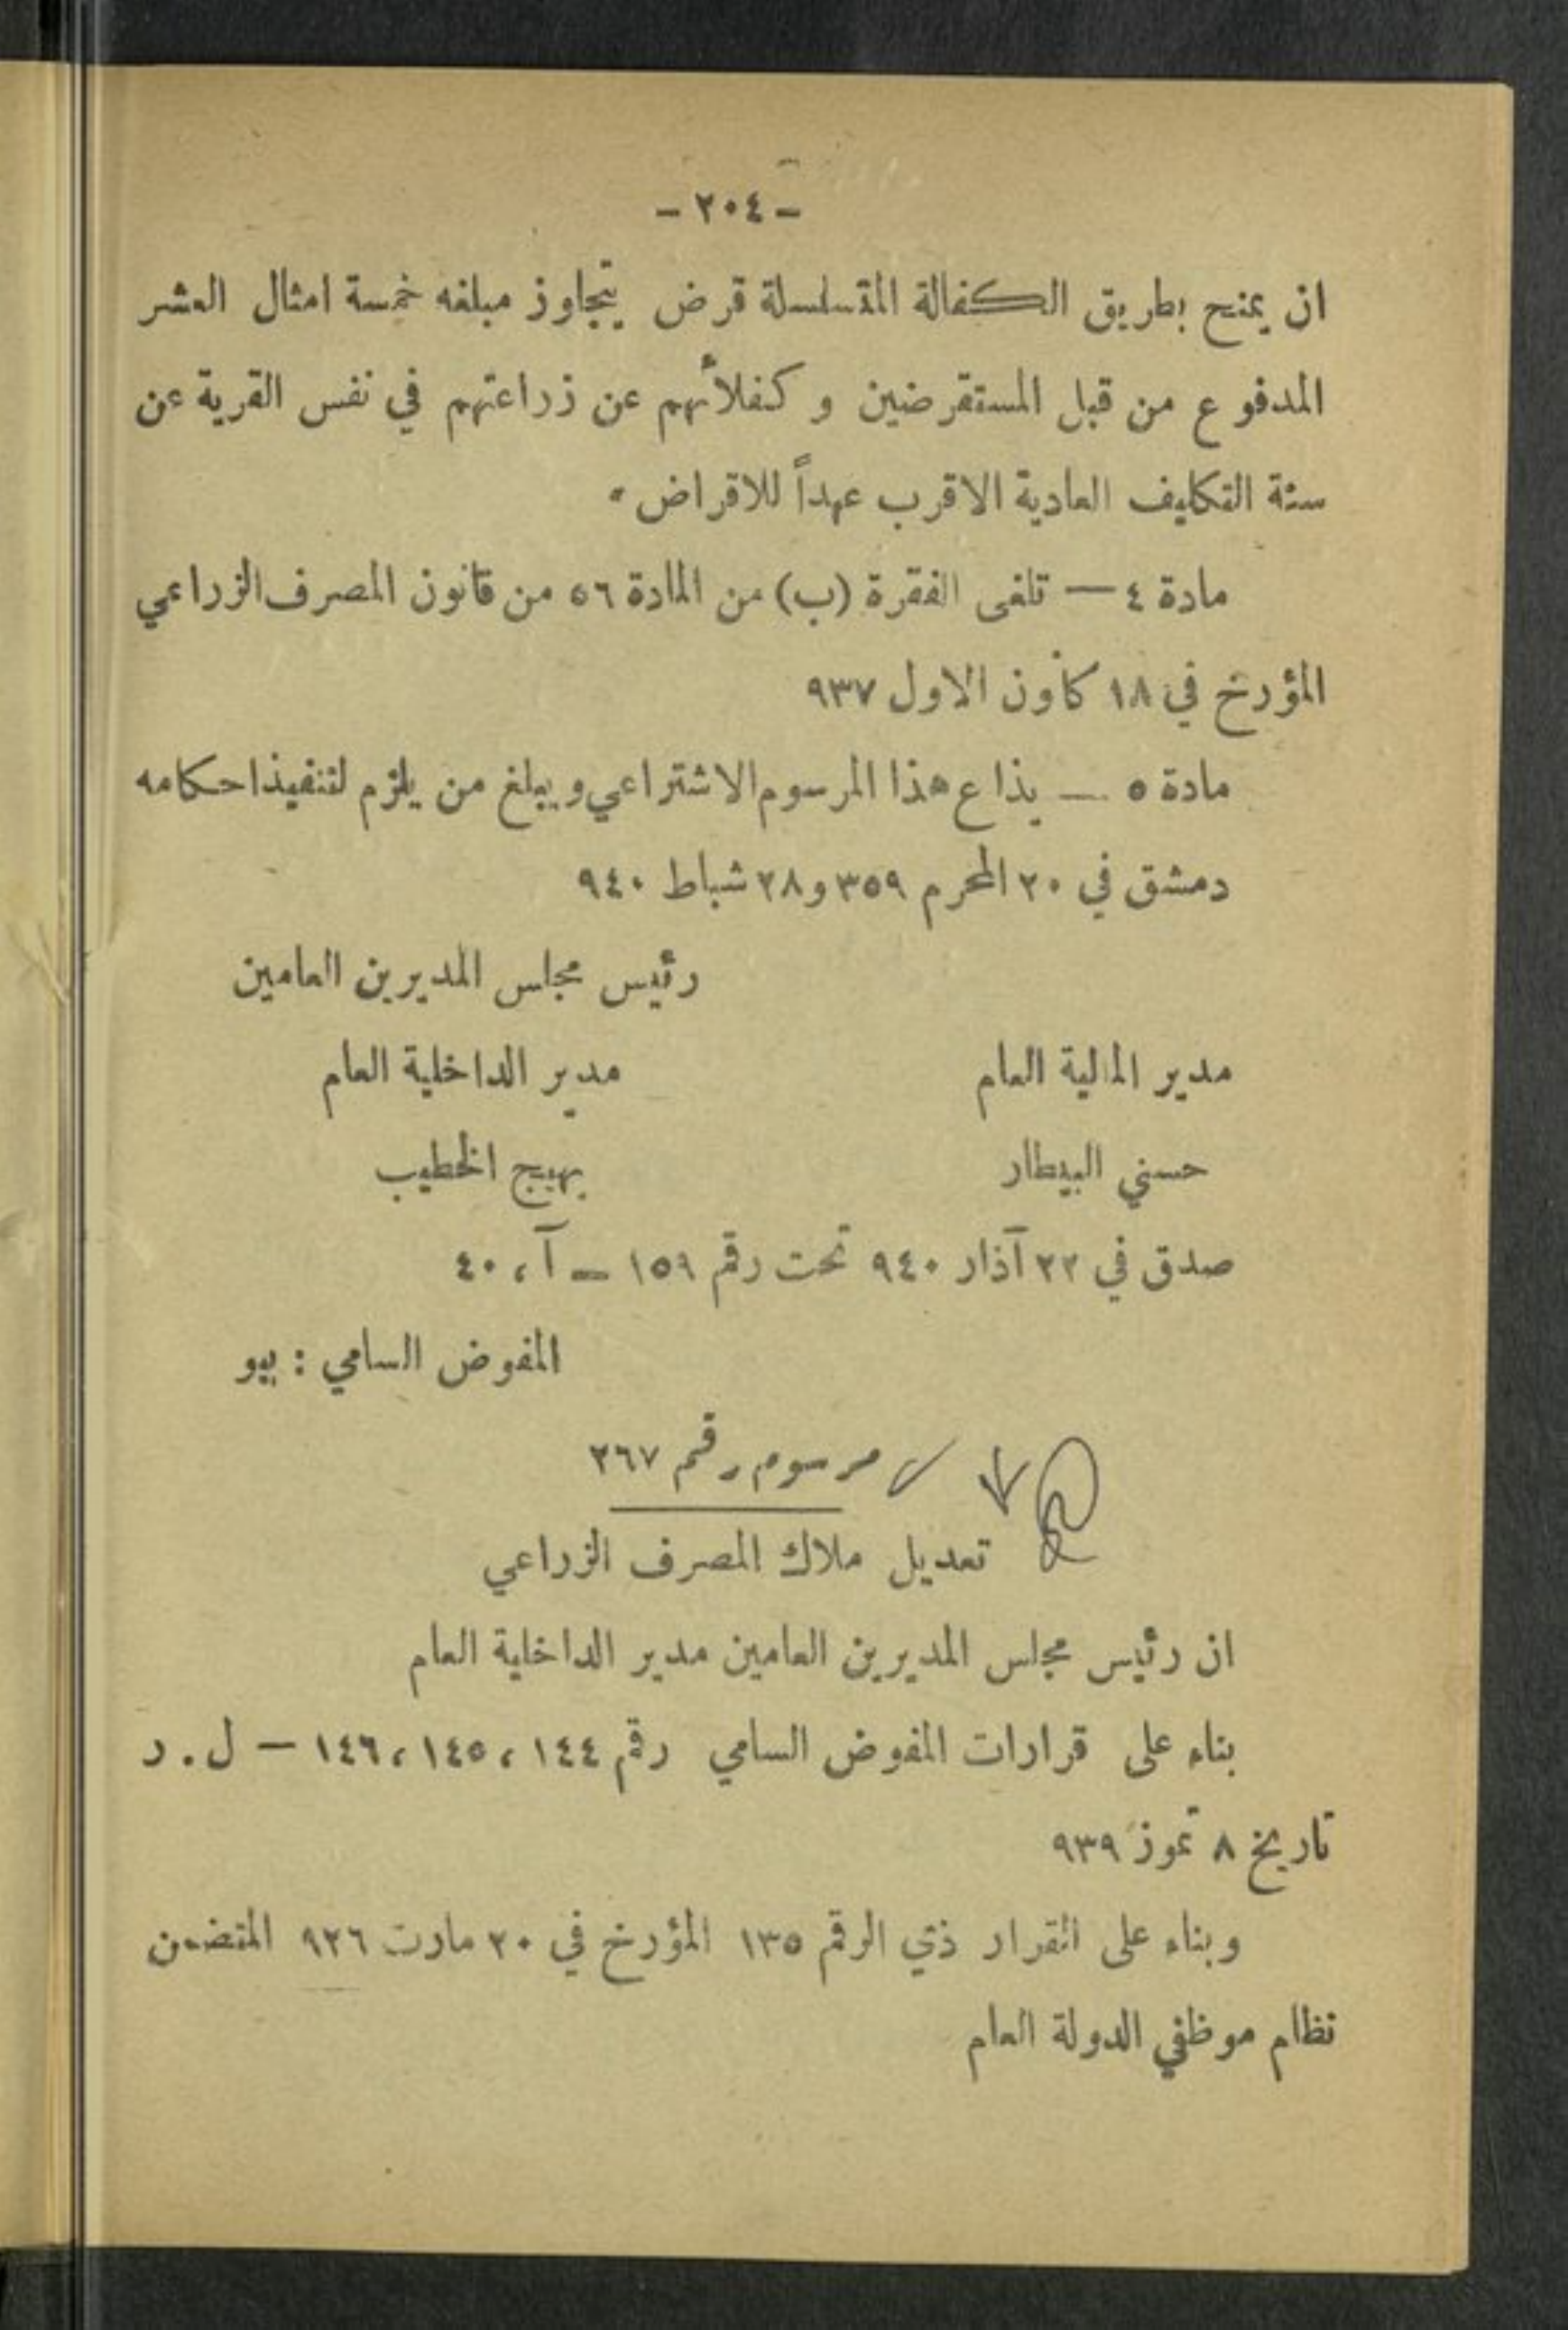 - ٢٠٤ -
ان يمنح بطريق الكفالة المتسلسلة قرض يتجاوز مبلغه خمسة امثال العشر
المدفوع من قبل المستقرضين و كفلائهم عن زراعتهم في نفس القرية عن
سنة التكاليف العادية الاقرب عهداً للاقراض .
مادة ٤ — تلغى الفقرة (ب) من المادة ٥٦ من قانون المصرف الزراعي
المؤرخ في ١٨ كانون الاول ٩٣٧
مادة ٥ — يذاع هذا المرسوم الاشتراعي ويبلغ من يلزم لتنفيذ احكامه
دمشق في ٢٠ المحرم ٣٥٩ و ٢٨ شباط ٩٤٠
رئيس مجلس المديرين العامين
مدير المالية العام مدير الداخلية العام
حسني البيطار بهيج الخطيب
صدق في ٢٢ آذار ٩٤٠ تحت رقم ١٥٩ – آ ، ٤٠
المفوض السامي : بيو
مرسوم رقم ٢٦٧
تعديل ملاك المصرف الزراعي
ان رئيس مجلس المديرين العامين مدير الداخلية العام
بناء على قرارات المفوض السامي رقم ١٤٤ ، ١٤٥ ، ١٤٦ — ل . ر
تاريخ ٨ تموز ٩٣٩
وبناء على القرار ذي الرقم ١٣٥ المؤرخ في ٢٠ مارت ٩٢٦ المتضمن
نظام موظفي الدولة العام